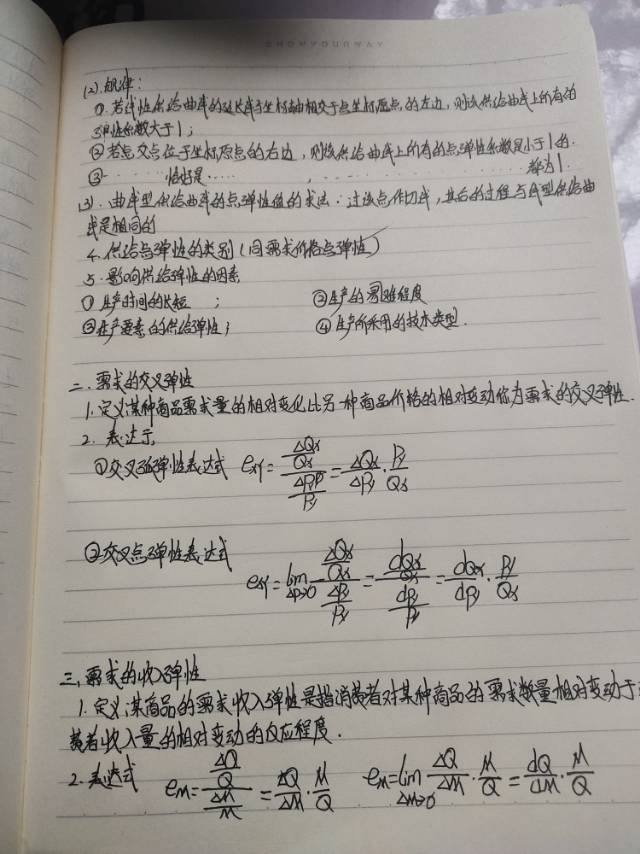 SHOWYOURWAY
(2).规律:
①.若线性供给曲线的延长线与坐标轴相交于点坐标原点的左边,则该供给曲线上所有的
弹性系数大于1;
②若总交点位于坐标原点的右边,则该供给曲线上所有的点弹性系数是小于1的.
③-······恰好是······,··················都为1.
(3).曲线型供给曲线的点弹性值的求法:过该点作切线,其后的过程与线型供给曲
线是相同的
4.供给点弹性的类别(同需求价格点弹性)
5.影响供给弹性的因素
①生产时间的长短 ; ③生产的难程度
②生产要素的供给弹性; ④生产所采用的技术类型.
二.需求的交叉弹性
1.定义:某种商品需求量的相对变化比另一种商品价格的相对变动称为需求的交叉弹性.
2.表达示
①交叉弧弹性表达式 exy = (ΔQx/Qx)/(ΔPy/Py) = ΔQx/ΔPy · Py/Qx
②交叉点弹性表达式 exy = lim ΔP→0 (ΔQx/Qx)/(ΔPy/Py) = (dQx/Qx)/(dPy/Py) = dQx/dPy · Py/Qx
三.需求的收入弹性
1.定义:某商品的需求收入弹性是指消费者对某种商品的需求数量相对变动于
费者收入量的相对变动的反应程度.
2.表达式 eM = (ΔQ/Q)/(ΔM/M) = ΔQ/ΔM · M/Q eM = lim ΔM→0 ΔQ/ΔM · M/Q = dQ/dM · M/Q